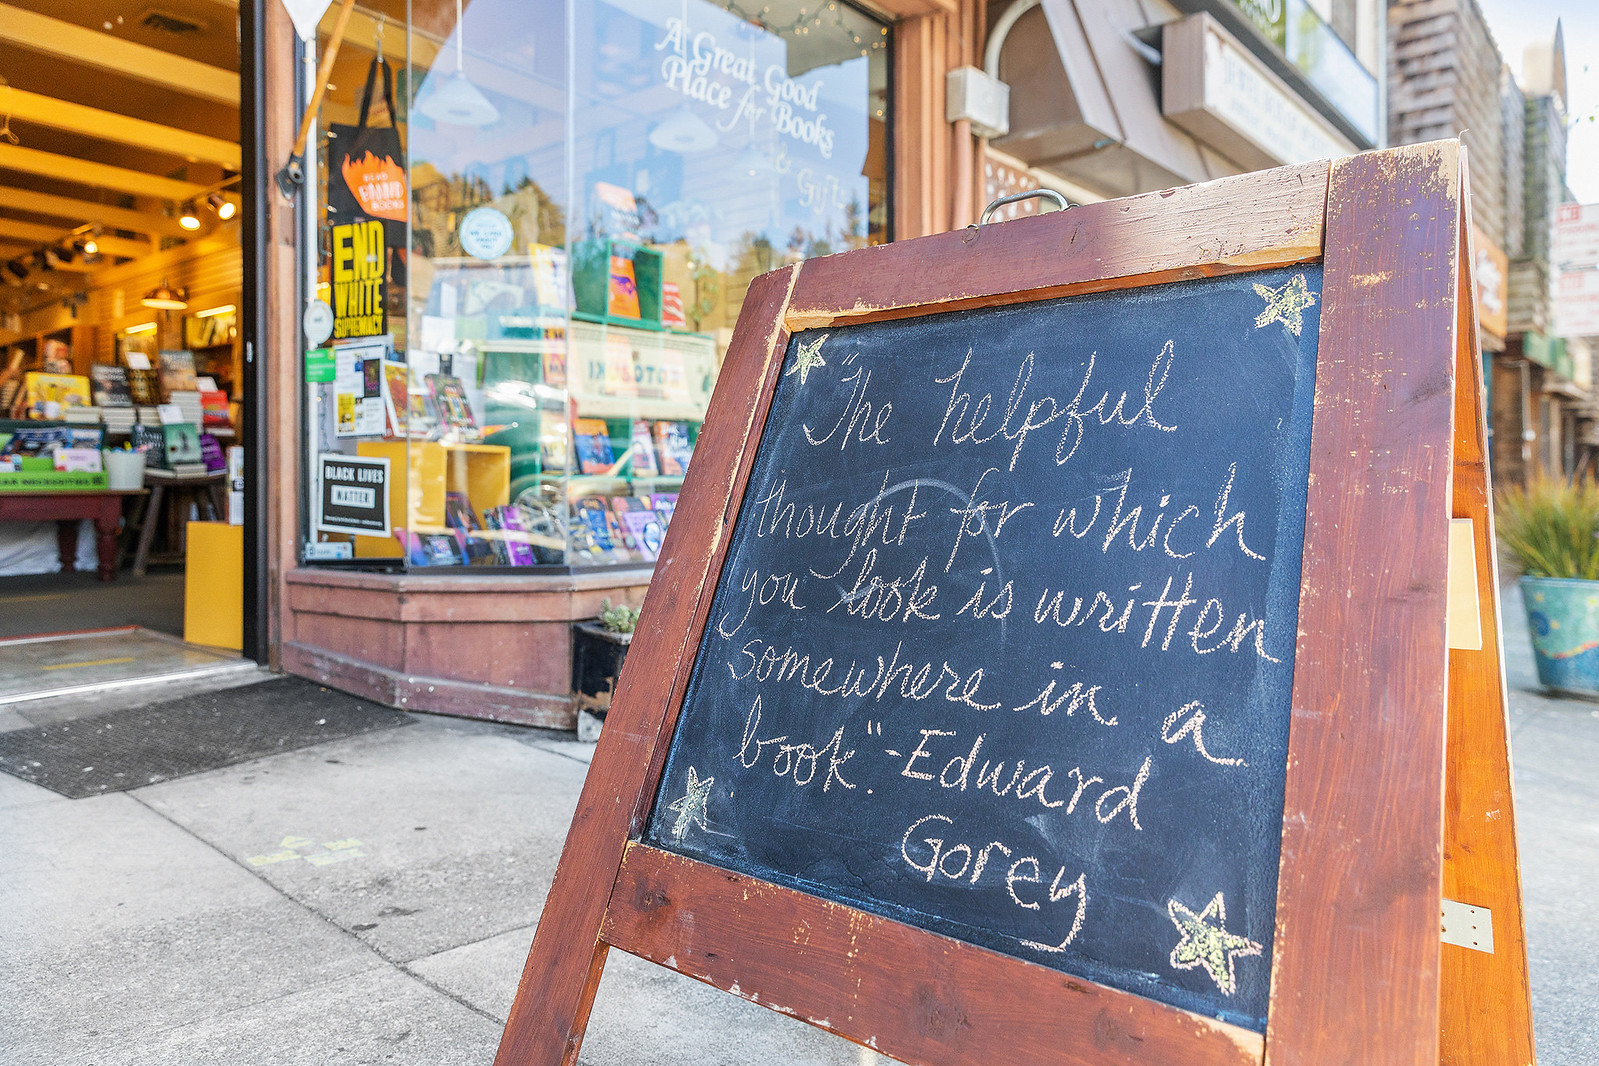 A Great Good
Place for Books
& Gifts
READ
BANNED
BOOKS
END
WHITE
SUPREMACY
BLACK LIVES
MATTER
"The helpful
thought for which
you look is written
somewhere in a
book". -Edward
Gorey